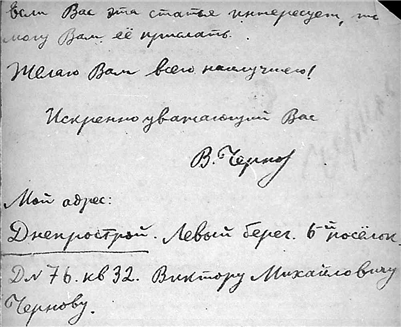 если Вас эта статья интересует, то
могу Вам её прислать.
Желаю Вам всего наилучшего!
Искренно уважающий Вас
В. Чернов
Мой адрес:
Днепрострой. Левый берег. 6й посёлок.
Д№ 76. кв 32. Виктору Михайловичу
Чернову.